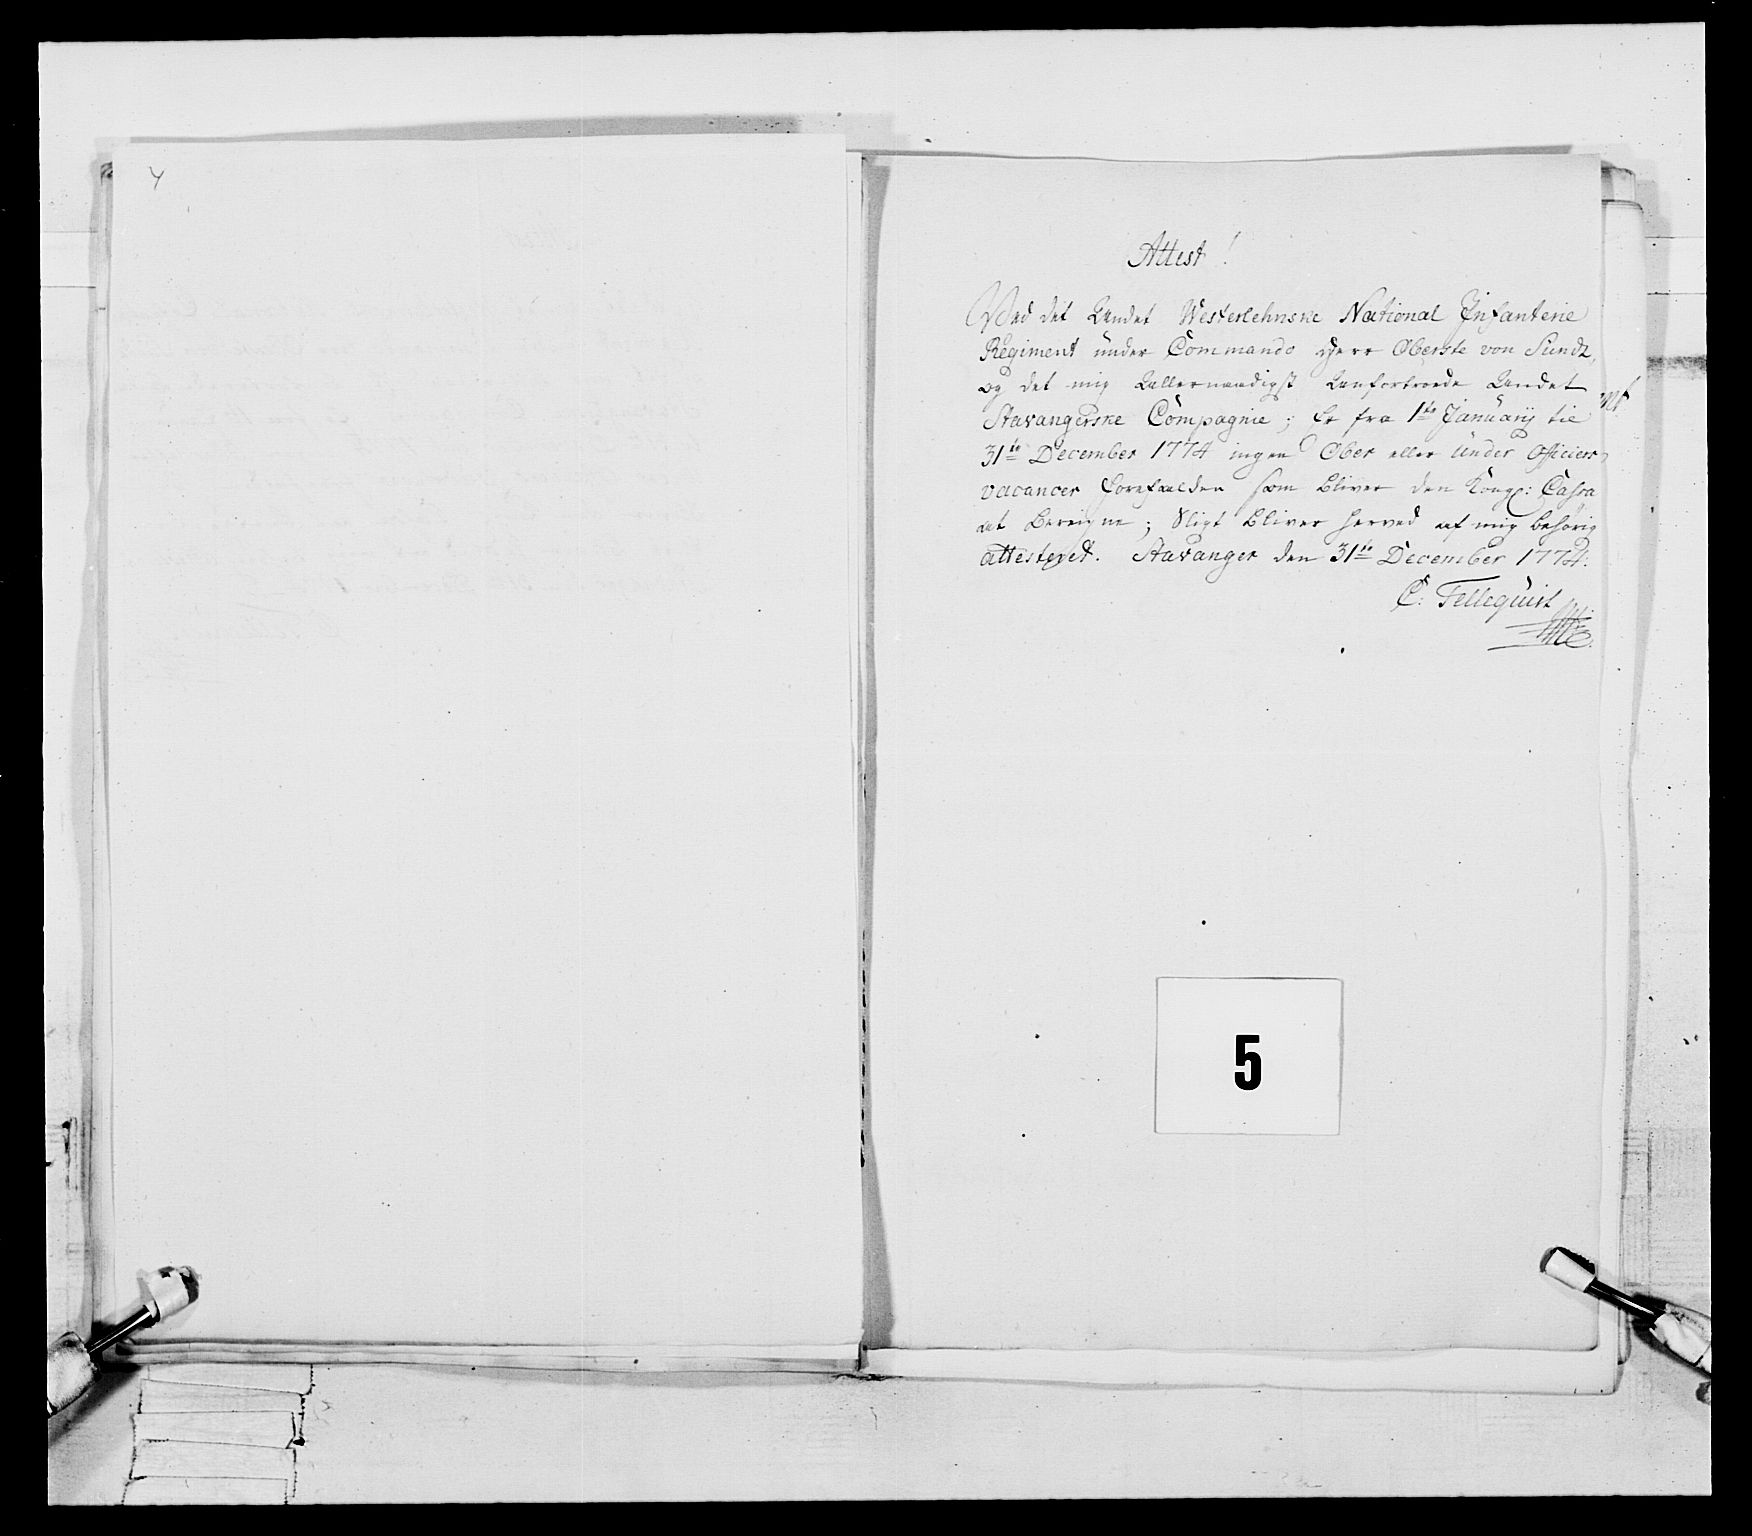 4
Attest!
Ved det Andet Westerlehnske National Infanterie
Regiment under Commando Herr Oberste von Sundt,
og det mig Allernaadigst Anfortroede Andet
Stavangerske Compagnie; Er fra 1te Januarij til
31te December 1774 ingen Ober eller Under Officiers
vacancer forefalden som bliver den Kongl: Cassa
at Bereigne; Sligt bliver herved af mig behørig
attesteret. Stavanger den 31te December 1774.
C: Fellequist
5